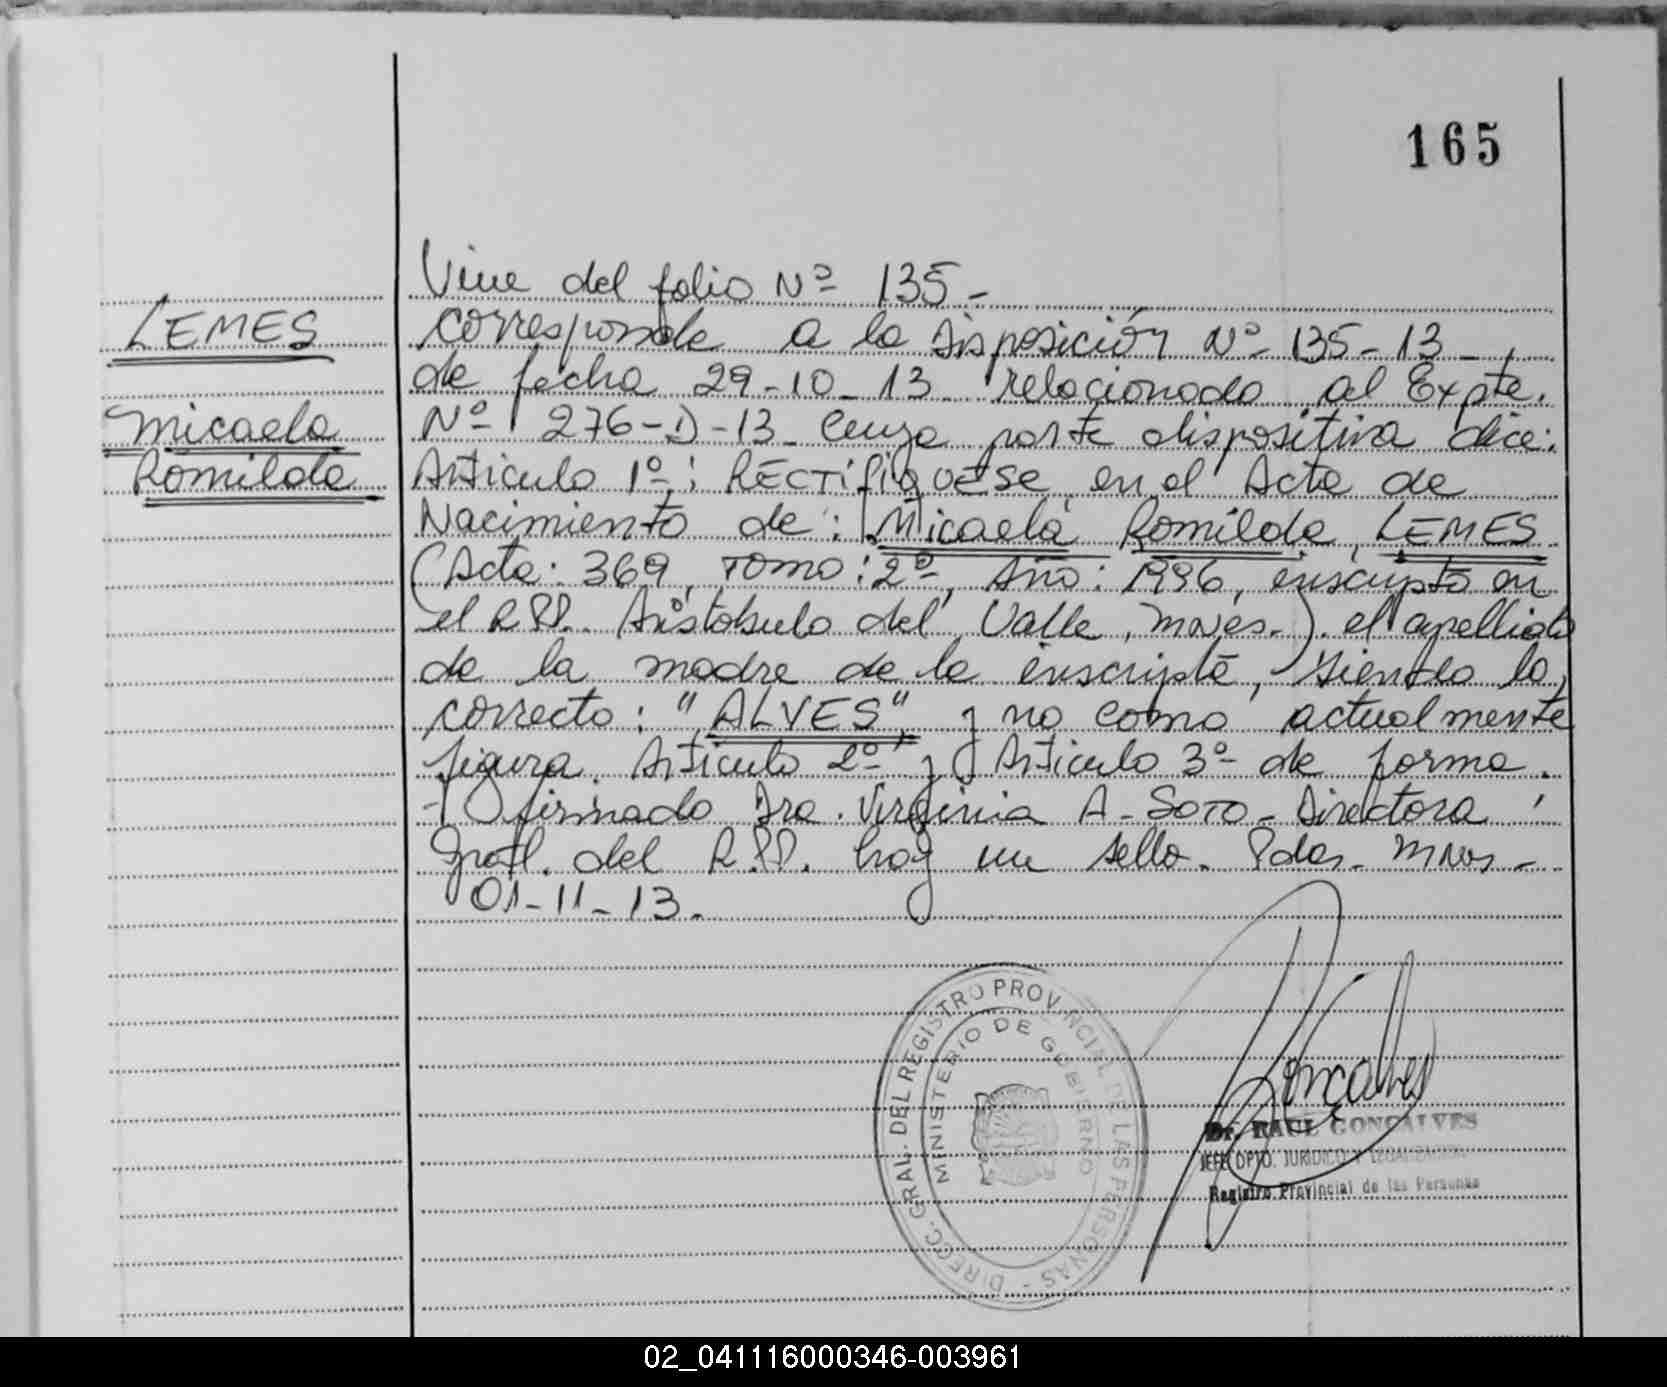 165
LEMES
Micaela
Romilda
Viene del folio Nº 135-
Corresponde a la Disposición Nº 135-13-
de fecha 29-10-13 relacionada al Expte.
Nº 276-D-13- Cuya parte dispositiva dice:
Articulo 1º: RECTIFIQUESE en el Acta de
Nacimiento de: Micaela Romilda LEMES
(Acta: 369, Tomo: 2º, Año: 1996, inscripta en
el R.P.P. Aristobulo del Valle, Mnes.). el apellido
de la madre de la inscripta, siendo lo
correcto: "ALVES" y no como actualmente
figura. Articulo 2º y Articulo 3º de forma.
firmado Dra. Virginia A. SOTO - Directora
Gral. del R.P.P. hay un sello. Pdas. Mnes-
01-11-13.
DIRECC. GRAL. DEL REGISTRO PROVINCIAL DE LAS PERSONAS -
MINISTERIO DE GOBIERNO
Gonçalves
Dr. RAUL GONCALVES
JEFE DPTO. JURIDICO Y
Registro Provincial de las Personas
02_041116000346-003961